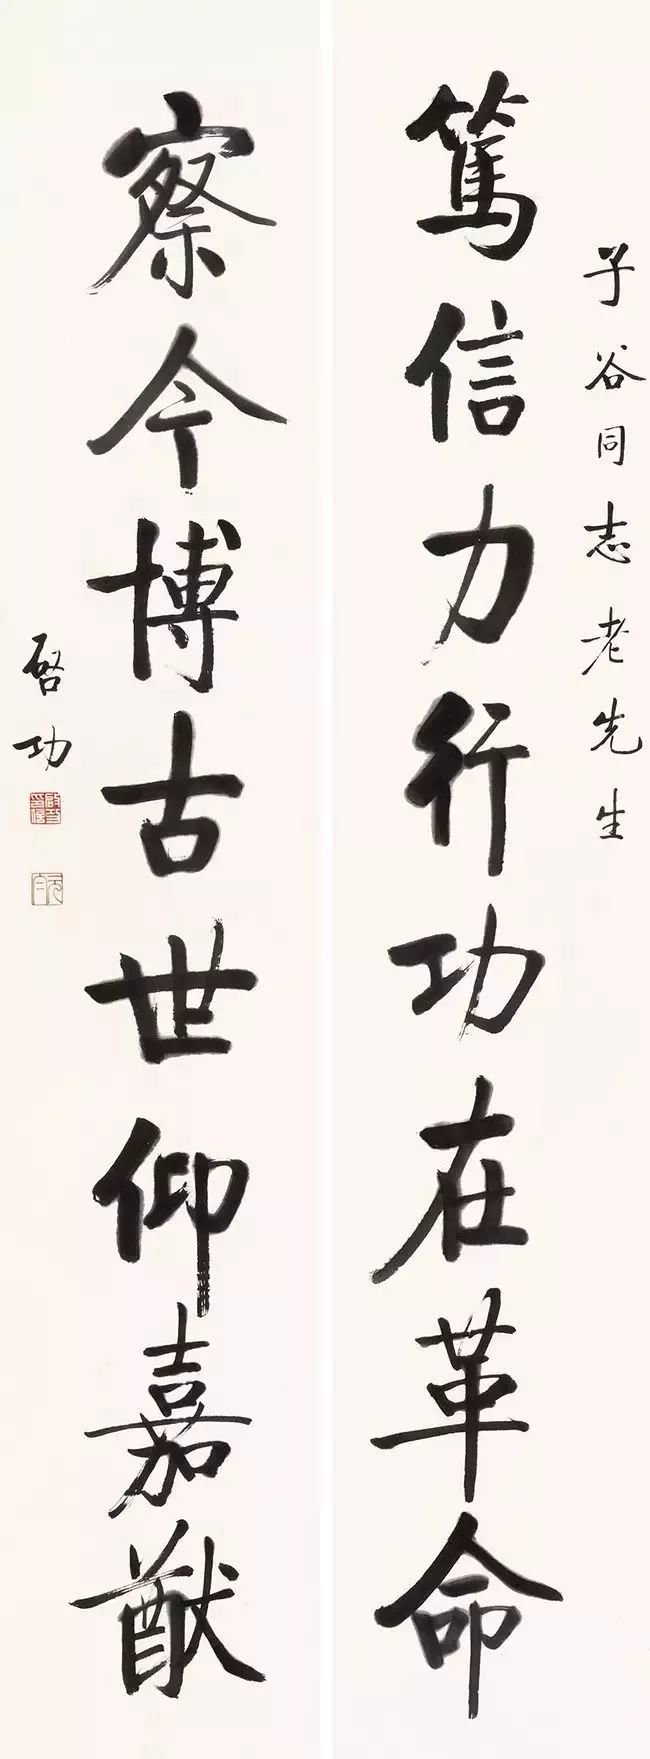 子谷同志老先生
篤信力行功在革命
察今博古世仰嘉猷
啓功
元白